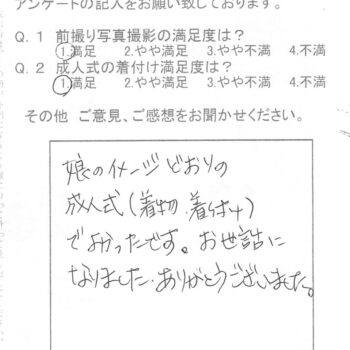 アンケートの記入をお願い致しております。
Q.1 前撮り写真撮影の満足度は?
1.満足 2.やや満足 3.やや不満 4.不満
Q.2 成人式の着付け満足度は?
1.満足 2.やや満足 3.やや不満 4.不満
その他 ご意見、ご感想をお聞かせください。
娘のイメージどおりの
成人式(着物.着付け)
でよかったです。お世話に
なりました.ありがとうございました。